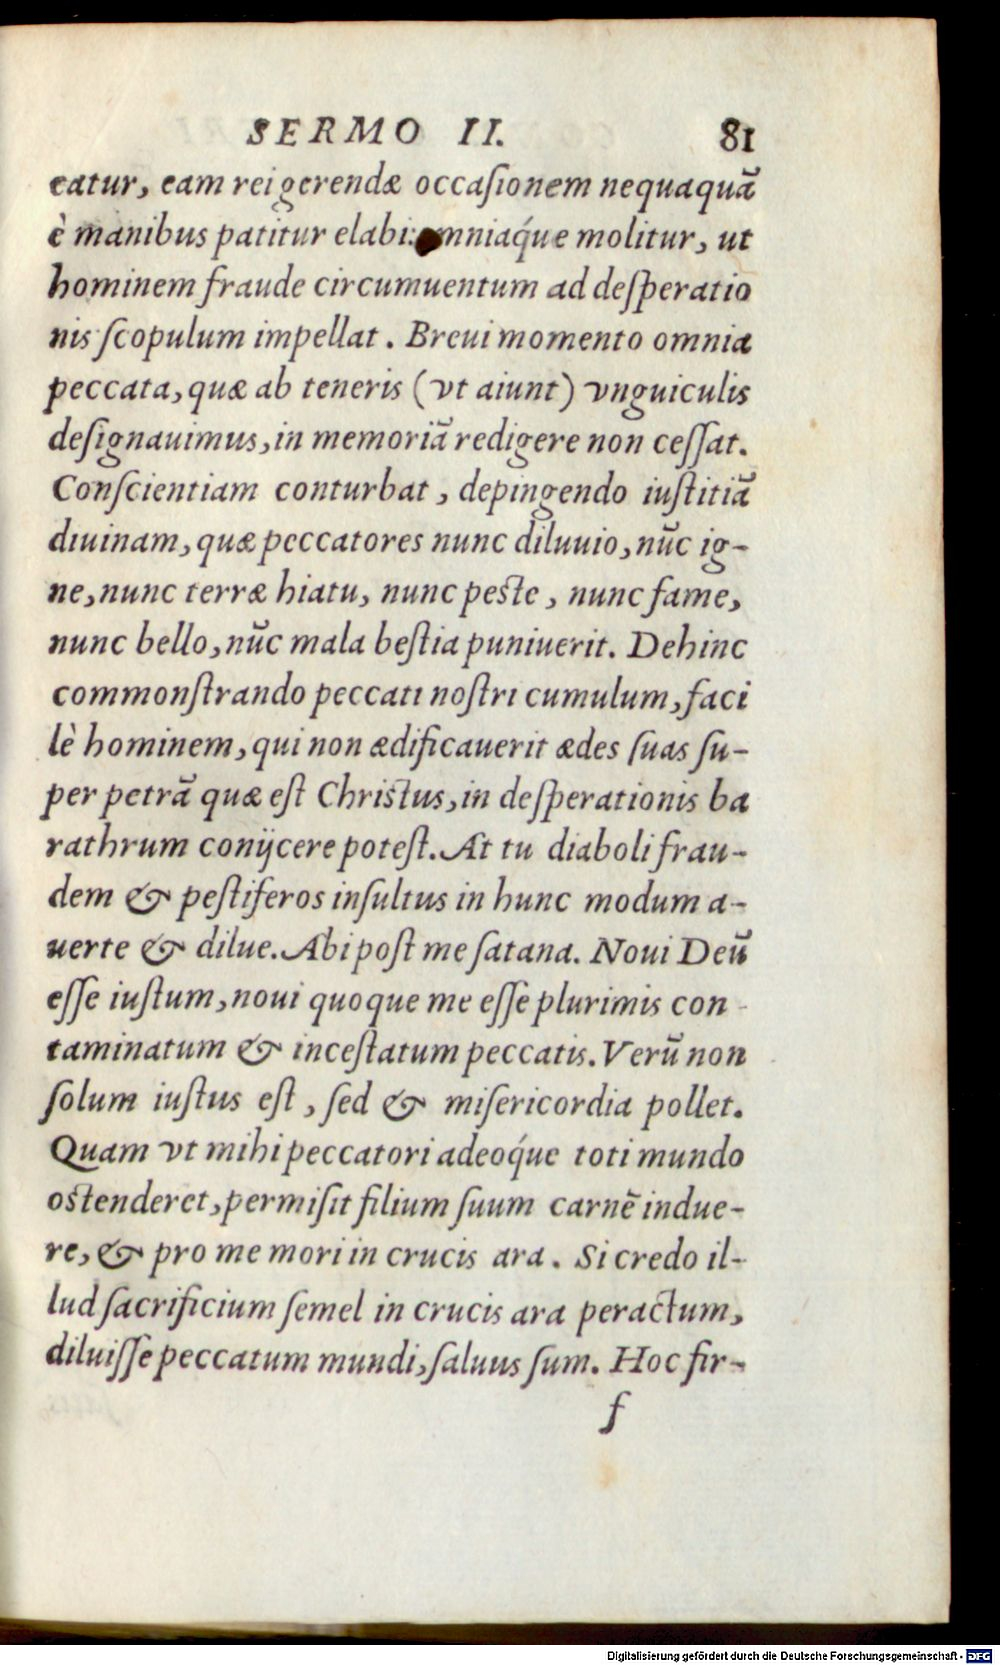 SERMO II. 81
catur, eam rei gerendæ occaſionem nequaquã
è manibus patitur elabi: omniaq́ue molitur, ut
hominem fraude circumuentum ad deſperatio
nis ſcopulum impellat. Breui momento omnia
peccata, quæ ab teneris (vt aiunt) vnguiculis
deſignauimus, in memoriã redigere non ceſſat.
Conſcientiam conturbat, depingendo iuſtitiã
diuinam, quæ peccatores nunc diluuio, nũc ig-
ne, nunc terræ hiatu, nunc peſte, nunc fame,
nunc bello, nũc mala beſtia puniuerit. Dehinc
commonſtrando peccati noſtri cumulum, faci
lè hominem, qui non ædificauerit ædes ſuas ſu-
per petrã quæ eſt Chriſtus, in deſperationis ba
rathrum conijcere poteſt. At tu diaboli frau-
dem & peſtiferos inſultus in hunc modum a-
uerte & dilue. Abi poſt me ſatana. Noui Deũ
eſſe iuſtum, noui quoque me eſſe plurimis con-
taminatum & inceſtatum peccatis. Verũ non
ſolum iuſtus eſt, ſed & miſericordia pollet.
Quam vt mihi peccatori adeoq́ue toti mundo
oſtenderet, permiſit filium ſuum carnẽ indue-
re, & pro me mori in crucis ara. Si credo il-
lud ſacrificium ſemel in crucis ara peractum,
diluiſſe peccatum mundi, ſaluus ſum. Hoc fir-
f
Digitalisierung gefördert durch die Deutsche Forschungsgemeinschaft - DFG